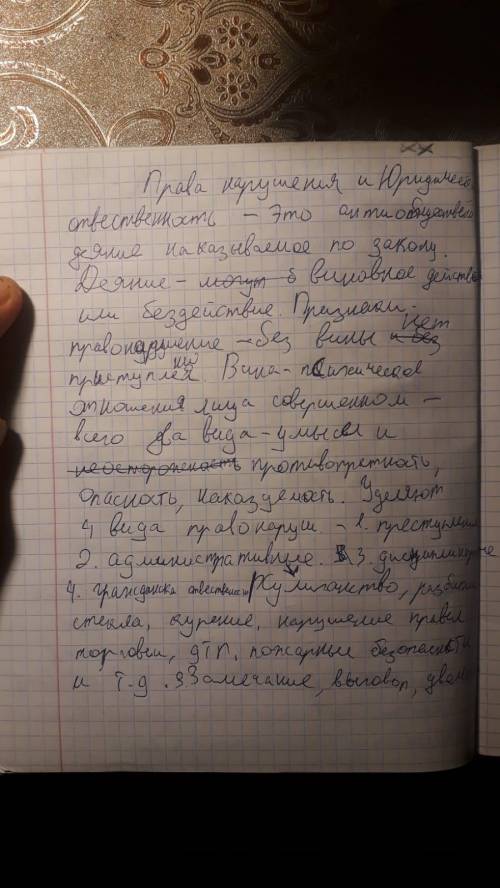 Права нарушения и Юридическ
отвественность – Это антиобществен
деяние наказываемое по закону.
Деяние – могут б виновное действ
или бездействие. Признаки -
правонарушение – без вины нет и без
приступления. Вина – псижическое
отношения лица совершенном –
всего два вида – умысел и
неосторожность противоправность,
опасность, наказуемость. Уделяют
4 вида правонаруш. – 1. преступления
2. административные. 3. дисциплинарые
4. гражданска отвественост Хулиганство, разбитые
стекла, курение, нарушение правил
торговли, ДТП, пожарные безопасности
и т.д. 3 Замечание, выговор, уволн